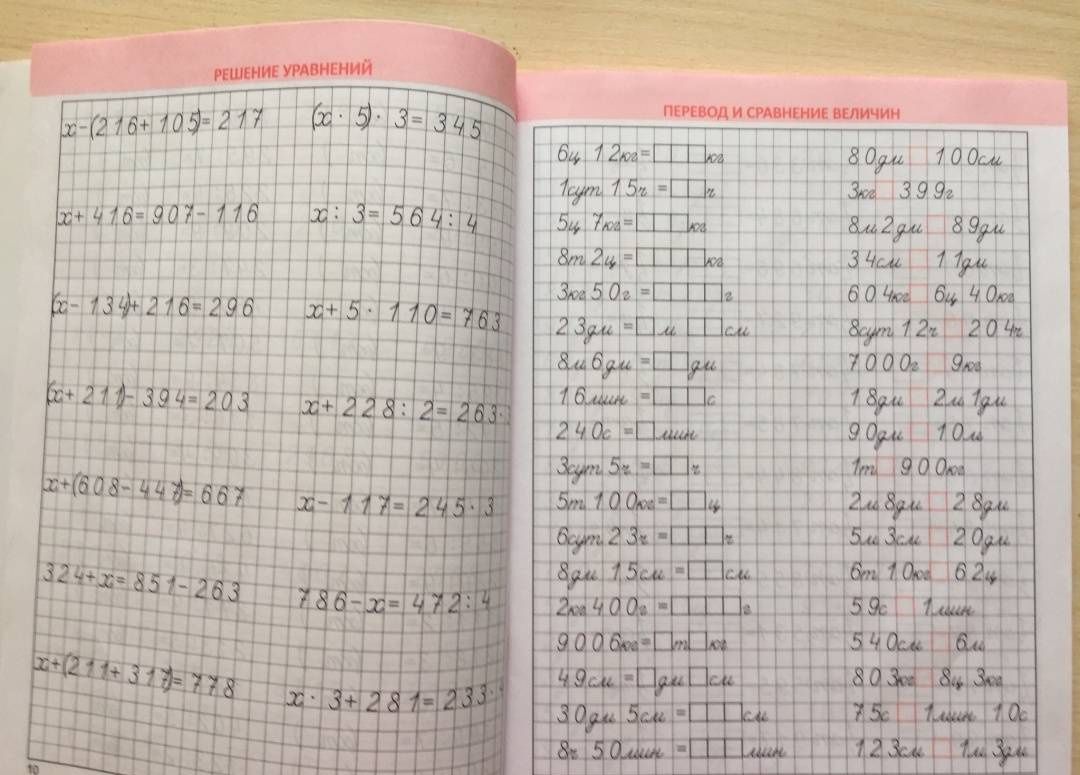 РЕШЕНИЕ УРАВНЕНИЙ
x-(216+105)=217 (x·5)·3=345
x+416=907-116 x:3=564:4
(x-134)+216=296 x+5·110=763
(x+211)-394=203 x+228:2=263·
x+(608-447)=667 x-117=245·3
324+x=851-263 786-x=472:4
x+(211+317)=778 x·3+281=233·
10
ПЕРЕВОД И СРАВНЕНИЕ ВЕЛИЧИН
6ц 12кг=□□□кг 80дм □ 100см
1сут 15ч =□□ч 3кг □ 399г
5ц 7кг=□□□кг 8м2дм □ 89дм
8т 2ц =□□□□кг 34см □ 11дм
3кг50г =□□□□г 604кг □ 6ц 40кг
23дм =□м □□см 8сут 12ч □ 204ч
8м6дм =□□дм 7000г □ 9кг
16мин =□□□с 18дм □ 2м1дм
240с =□мин 90дм □ 10м
3сут5ч =□□ч 1т □ 900кг
5т 100кг=□□ц 2м8дм □ 28дм
6сут23ч =□□□ч 5м3см □ 20дм
8дм 15см =□□см 6т 10кг □ 62ц
2кг400г =□□□□г 59с □ 1мин
9006кг=□т □кг 540см □ 6м
49см =□дм □см 803кг □ 8ц 3кг
30дм 5см =□□□см 75с □ 1мин 10с
8ч 50мин =□□□мин 123см □ 1м3дм